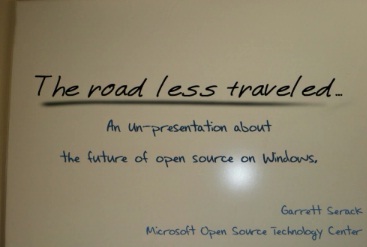 The road less traveled...
An un-presentation about
the future of open source on Windows.
Garrett Serack
Microsoft Open Source Technology Center